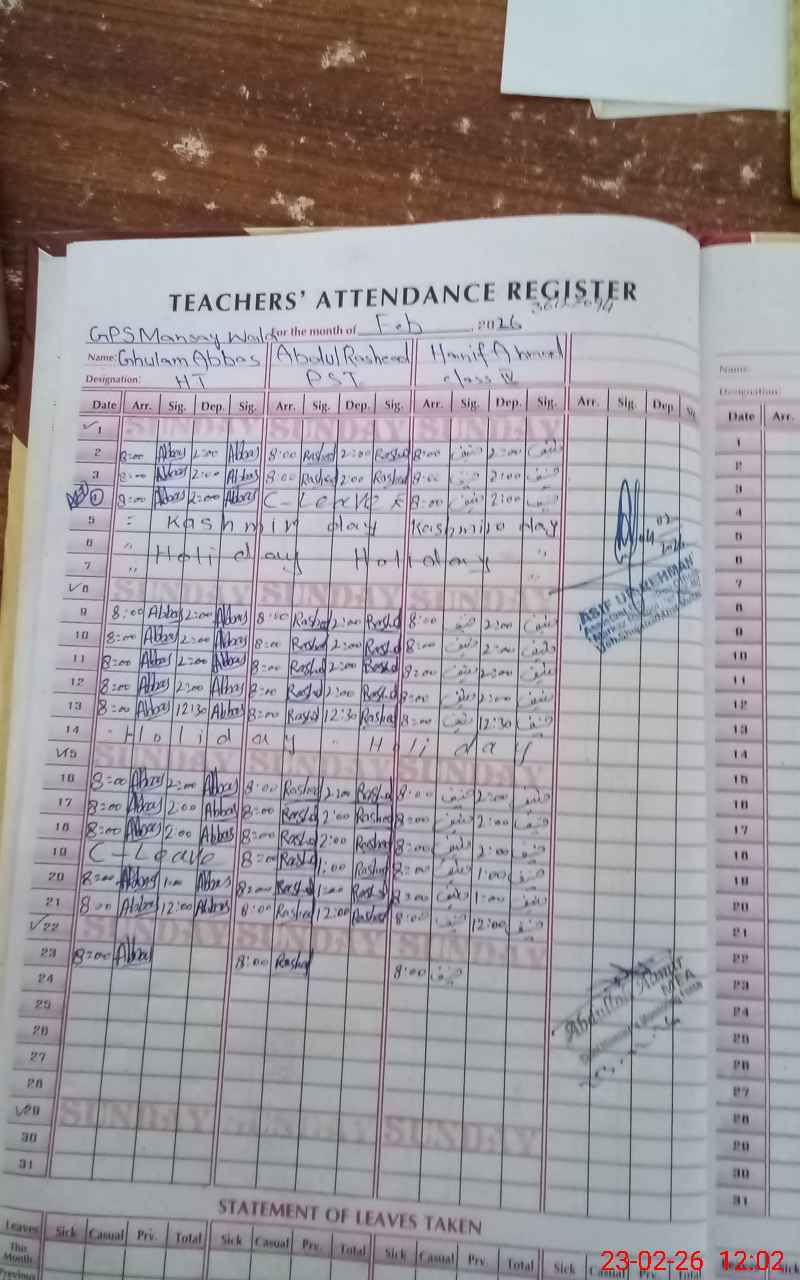 TEACHERS' ATTENDANCE REGISTER
GPS Mansay Wald for the month of Feb, 2026
Name: Ghulam Abbas Abdul Rasheed Hanif Ahmad
Designation: HT PST class IV
Date Arr. Sig. Dep. Sig. Arr. Sig. Dep. Sig. Arr. Sig. Dep. Sig. Arr. Sig. Dep
1 SUNDAY SUNDAY SUNDAY
2 8:00 Abbas 2:00 Abbas 8:00 Rashd 2:00 Rashd 8:00 حنیف 2:00 حنیف
3 8:00 Abbas 2:00 Abbas 8:00 Rashd 2:00 Rashd 8:00 حنیف 2:00 حنیف
4 8:00 Abbas 2:00 Abbas C-Leave 8:00 حنیف 2:00 حنیف
5 Kashmir day Kashmir day
6 Holiday Holiday
7
8 SUNDAY SUNDAY SUNDAY
9 8:00 Abbas 2:00 Abbas 8:00 Rashd 2:00 Rashd 8:00 حنیف 2:00 حنیف
10 8:00 Abbas 2:00 Abbas 8:00 Rashd 2:00 Rashd 8:00 حنیف 2:00 حنیف
11 8:00 Abbas 2:00 Abbas 8:00 Rashd 2:00 Rashd 8:00 حنیف 2:00 حنیف
12 8:00 Abbas 2:00 Abbas 8:00 Rashd 2:00 Rashd 8:00 حنیف 2:00 حنیف
13 8:00 Abbas 12:30 Abbas 8:00 Rashd 12:30 Rashd 8:00 حنیف 12:30 حنیف
14 Holiday Holiday
15 SUNDAY SUNDAY SUNDAY
16 8:00 Abbas 2:00 Abbas 8:00 Rashd 2:00 Rashd 8:00 حنیف 2:00 حنیف
17 8:00 Abbas 2:00 Abbas 8:00 Rashd 2:00 Rashd 8:00 حنیف 2:00 حنیف
18 8:00 Abbas 2:00 Abbas 8:00 Rashd 2:00 Rashd 8:00 حنیف 2:00 حنیف
19 C-Leave 8:00 Rashd 1:00 Rashd 8:00 حنیف 1:00 حنیف
20 8:00 Abbas 1:00 Abbas 8:00 Rashd 1:00 Rashd 8:00 حنیف 1:00 حنیف
21 8:00 Abbas 12:00 Abbas 8:00 Rashd 12:00 Rashd 8:00 حنیف 12:00 حنیف
22 SUNDAY SUNDAY SUNDAY
23 8:00 Abbas 8:00 Rashd 8:00 حنیف
24
25
26
27
28
29 SUNDAY SUNDAY SUNDAY
30
31
ASIF UR REHMAN
Abdullah
MEA
STATEMENT OF LEAVES TAKEN
Leaves Sick Casual Prv. Total Sick Casual Prv. Total Sick Casual Prv. Total Sick Casual Prv. Total
This Month
Previous
Name:
Designation:
Date Arr.
1
2
3
4
5
6
7
8
9
10
11
12
13
14
15
16
17
18
19
20
21
22
23
24
25
26
27
28
29
30
31
Sick
23-02-26 12:02